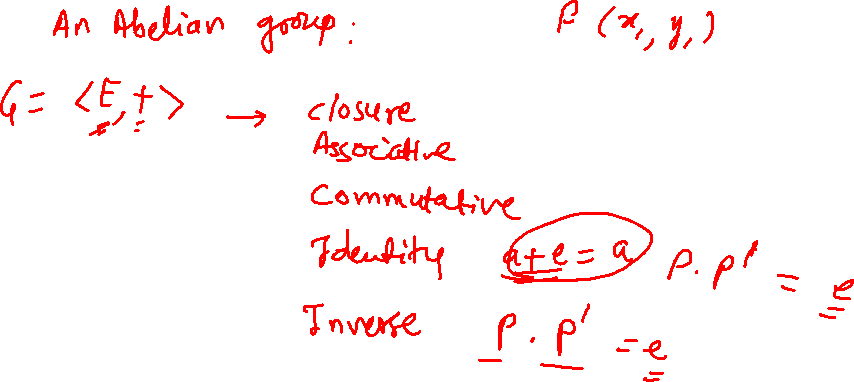 An Abelian group: P (x₁, y₁)
G = <E, +> → closure
Associative
Commutative
Identity a+e = a P. P' = e
Inverse P. P' = e